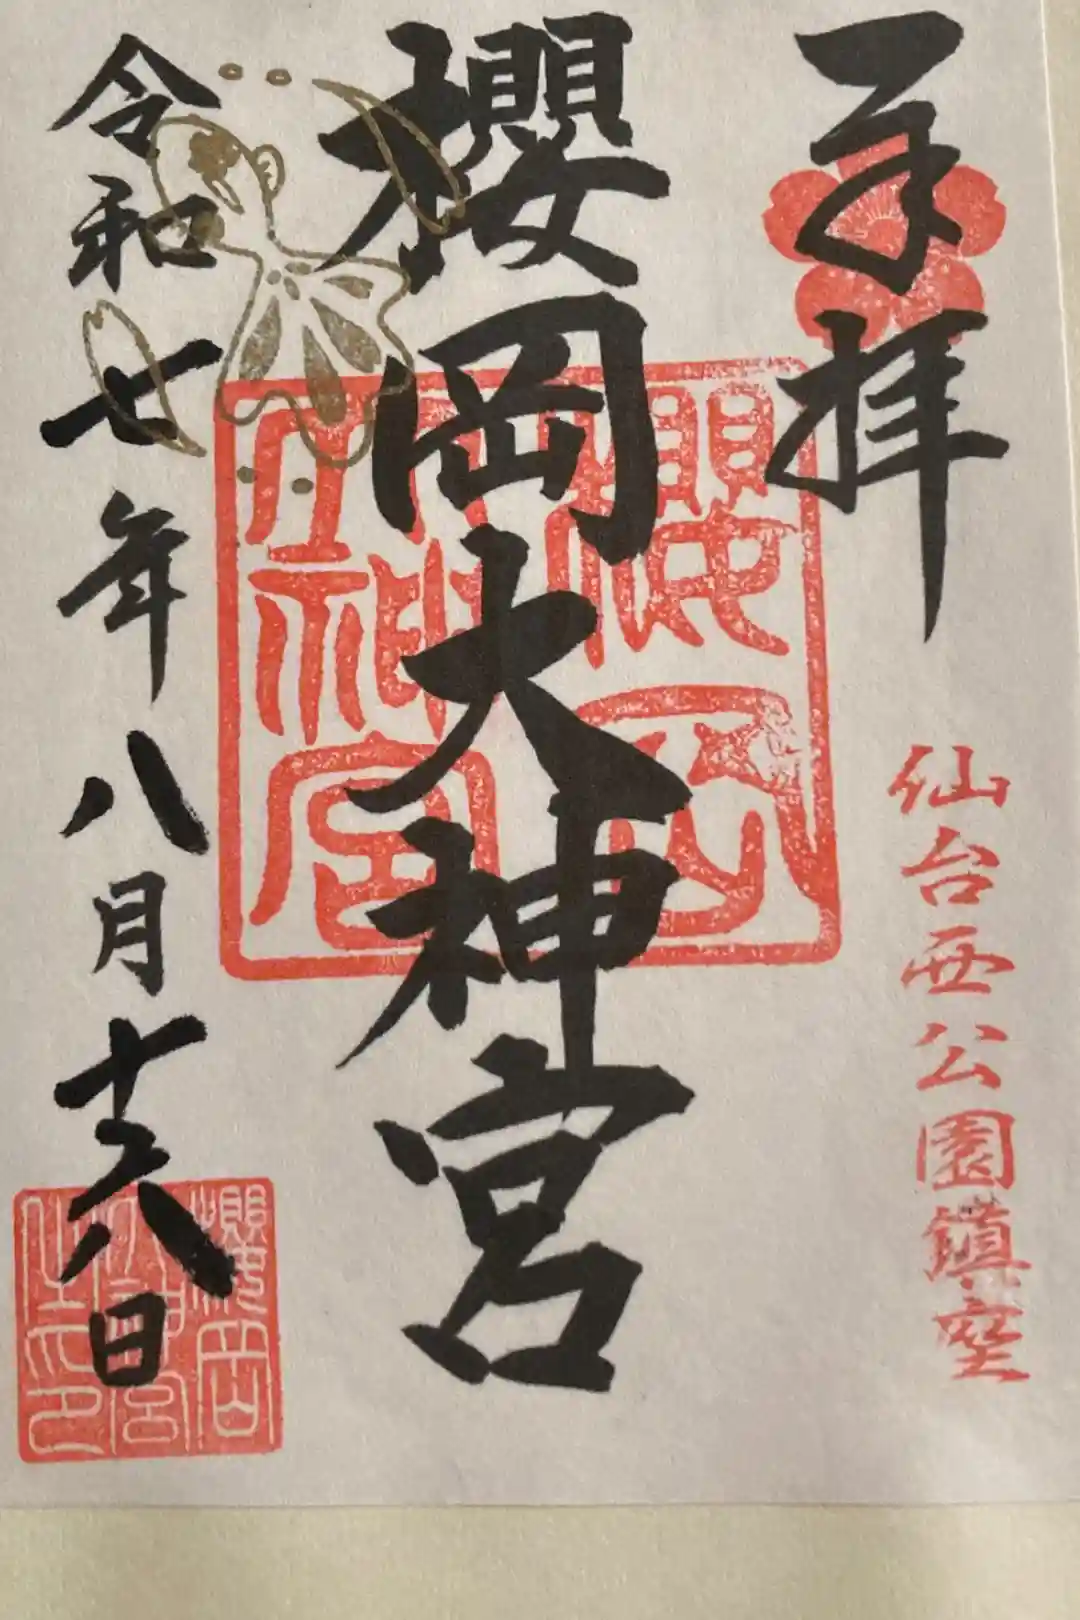 奉拝
仙台西公園鎮座
櫻岡大神宮
櫻岡
大神宮
令和七年八月十六日
櫻岡
大神宮
之印